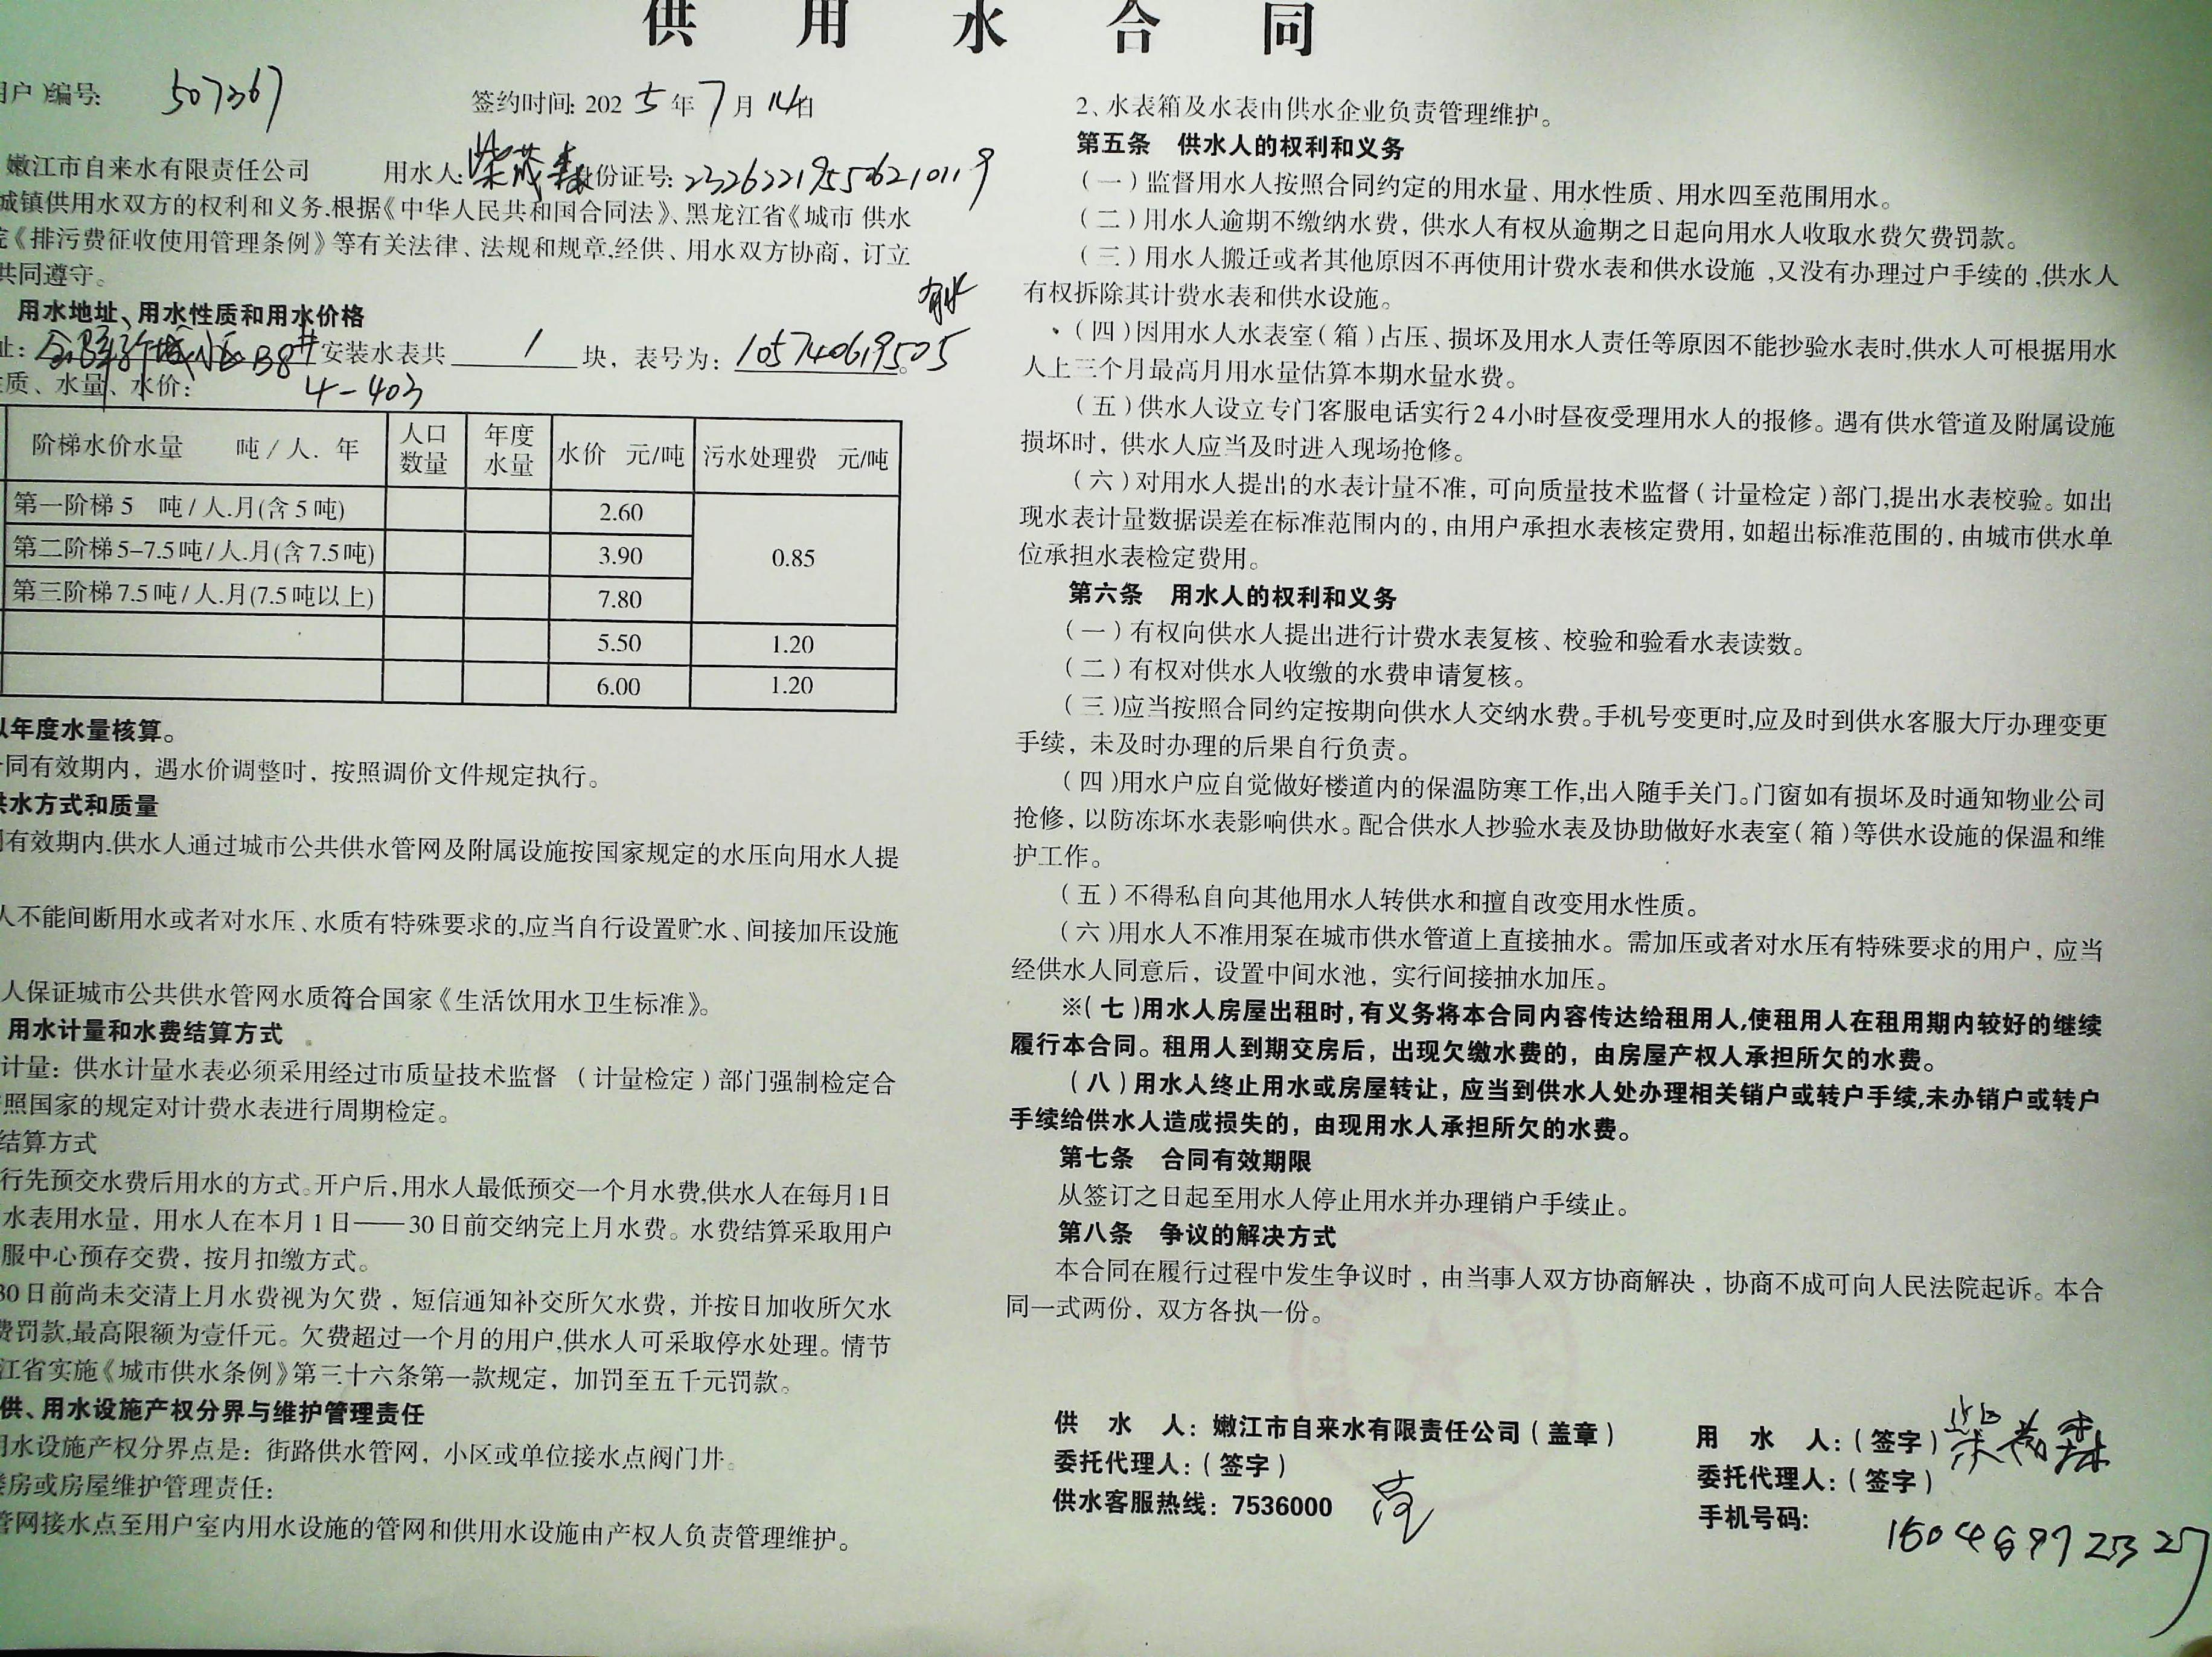 供用水合同
用户)编号: 507367 签约时间: 2025年7月14日
嫩江市自来水有限责任公司 用水人: 柴茂森 身份证号:
城镇供用水双方的权利和义务,根据《中华人民共和国合同法》、黑龙江省《城市 供水
《排污费征收使用管理条例》等有关法律、法规和规章,经供、用水双方协商，订立
共同遵守。
用水地址、用水性质和用水价格
址: 小区B8# 安装水表共 1 块，表号为: 105740619505
4-403
质、水量、水价:
阶梯水价水量 吨/人. 年 人口数量 年度水量 水价 元/吨 污水处理费 元/吨
第一阶梯5 吨/人.月(含5吨) 2.60
第二阶梯5-7.5吨/人.月(含7.5吨) 3.90 0.85
第三阶梯7.5吨/人.月(7.5吨以上) 7.80
5.50 1.20
6.00 1.20
以年度水量核算。
合同有效期内，遇水价调整时，按照调价文件规定执行。
供水方式和质量
有效期内,供水人通过城市公共供水管网及附属设施按国家规定的水压向用水人提
人不能间断用水或者对水压、水质有特殊要求的,应当自行设置贮水、间接加压设施
人保证城市公共供水管网水质符合国家《生活饮用水卫生标准》。
用水计量和水费结算方式
计量：供水计量水表必须采用经过市质量技术监督 （计量检定）部门强制检定合
照国家的规定对计费水表进行周期检定。
结算方式
行先预交水费后用水的方式。开户后,用水人最低预交一个月水费,供水人在每月1日
水表用水量，用水人在本月1日——30日前交纳完上月水费。水费结算采取用户
服中心预存交费，按月扣缴方式。
30日前尚未交清上月水费视为欠费，短信通知补交所欠水费，并按日加收所欠水
费罚款,最高限额为壹仟元。欠费超过一个月的用户,供水人可采取停水处理。情节
江省实施《城市供水条例》第三十六条第一款规定，加罚至五千元罚款。
供、用水设施产权分界与维护管理责任
用水设施产权分界点是：街路供水管网，小区或单位接水点阀门井。
楼房或房屋维护管理责任:
管网接水点至用户室内用水设施的管网和供用水设施由产权人负责管理维护。
2、水表箱及水表由供水企业负责管理维护。
第五条 供水人的权利和义务
（一）监督用水人按照合同约定的用水量、用水性质、用水四至范围用水。
（二）用水人逾期不缴纳水费，供水人有权从逾期之日起向用水人收取水费欠费罚款。
（三）用水人搬迁或者其他原因不再使用计费水表和供水设施,又没有办理过户手续的,供水人
有权拆除其计费水表和供水设施。
（四）因用水人水表室（箱）占压、损坏及用水人责任等原因不能抄验水表时,供水人可根据用水
人上三个月最高月用水量估算本期水量水费。
（五）供水人设立专门客服电话实行24小时昼夜受理用水人的报修。遇有供水管道及附属设施
损坏时，供水人应当及时进入现场抢修。
（六）对用水人提出的水表计量不准，可向质量技术监督（计量检定）部门,提出水表校验。如出
现水表计量数据误差在标准范围内的，由用户承担水表核定费用，如超出标准范围的，由城市供水单
位承担水表检定费用。
第六条 用水人的权利和义务
（一）有权向供水人提出进行计费水表复核、校验和验看水表读数。
（二）有权对供水人收缴的水费申请复核。
（三)应当按照合同约定按期向供水人交纳水费。手机号变更时,应及时到供水客服大厅办理变更
手续，未及时办理的后果自行负责。
（四)用水户应自觉做好楼道内的保温防寒工作,出入随手关门。门窗如有损坏及时通知物业公司
抢修，以防冻坏水表影响供水。配合供水人抄验水表及协助做好水表室（箱）等供水设施的保温和维
护工作。
（五）不得私自向其他用水人转供水和擅自改变用水性质。
（六)用水人不准用泵在城市供水管道上直接抽水。需加压或者对水压有特殊要求的用户，应当
经供水人同意后，设置中间水池，实行间接抽水加压。
※(七)用水人房屋出租时,有义务将本合同内容传达给租用人,使租用人在租用期内较好的继续
履行本合同。租用人到期交房后，出现欠缴水费的，由房屋产权人承担所欠的水费。
（八）用水人终止用水或房屋转让，应当到供水人处办理相关销户或转户手续,未办销户或转户
手续给供水人造成损失的，由现用水人承担所欠的水费。
第七条 合同有效期限
从签订之日起至用水人停止用水并办理销户手续止。
第八条 争议的解决方式
本合同在履行过程中发生争议时，由当事人双方协商解决，协商不成可向人民法院起诉。本合
同一式两份，双方各执一份。
供 水 人：嫩江市自来水有限责任公司（盖章） 用 水 人：（签字）柴茂森
委托代理人：（签字） 委托代理人：（签字）
供水客服热线：7536000 手机号码: